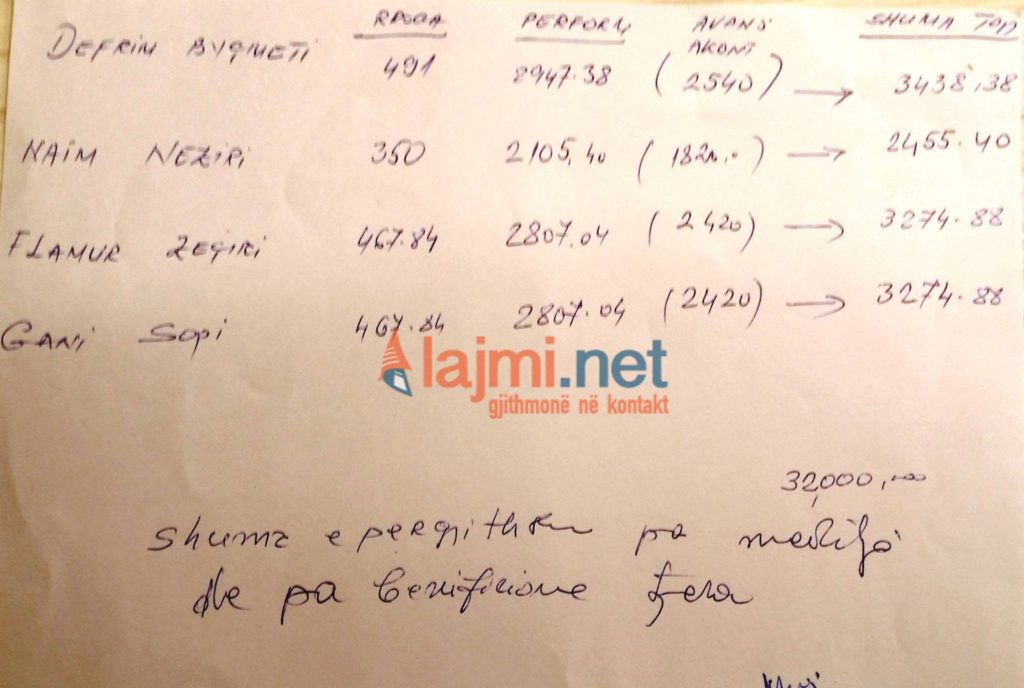 RROGA PERFORM AVANS AKONT SHUMA TOT
DEFRIM BYQMETI 491 2947.38 (2540) → 3438,38
NAIM NEZIRI 350 2105,40 (1820,0) → 2455.40
FLAMUR ZEQIRI 467.84 2807.04 (2420) → 3274.88
GANI SOPI 467.84 2807.04 (2420) → 3274.88
lajmi.net
gjithmonë në kontakt
32,000,00
shuma e pergjithshme pa
dhe pa benificione tjera